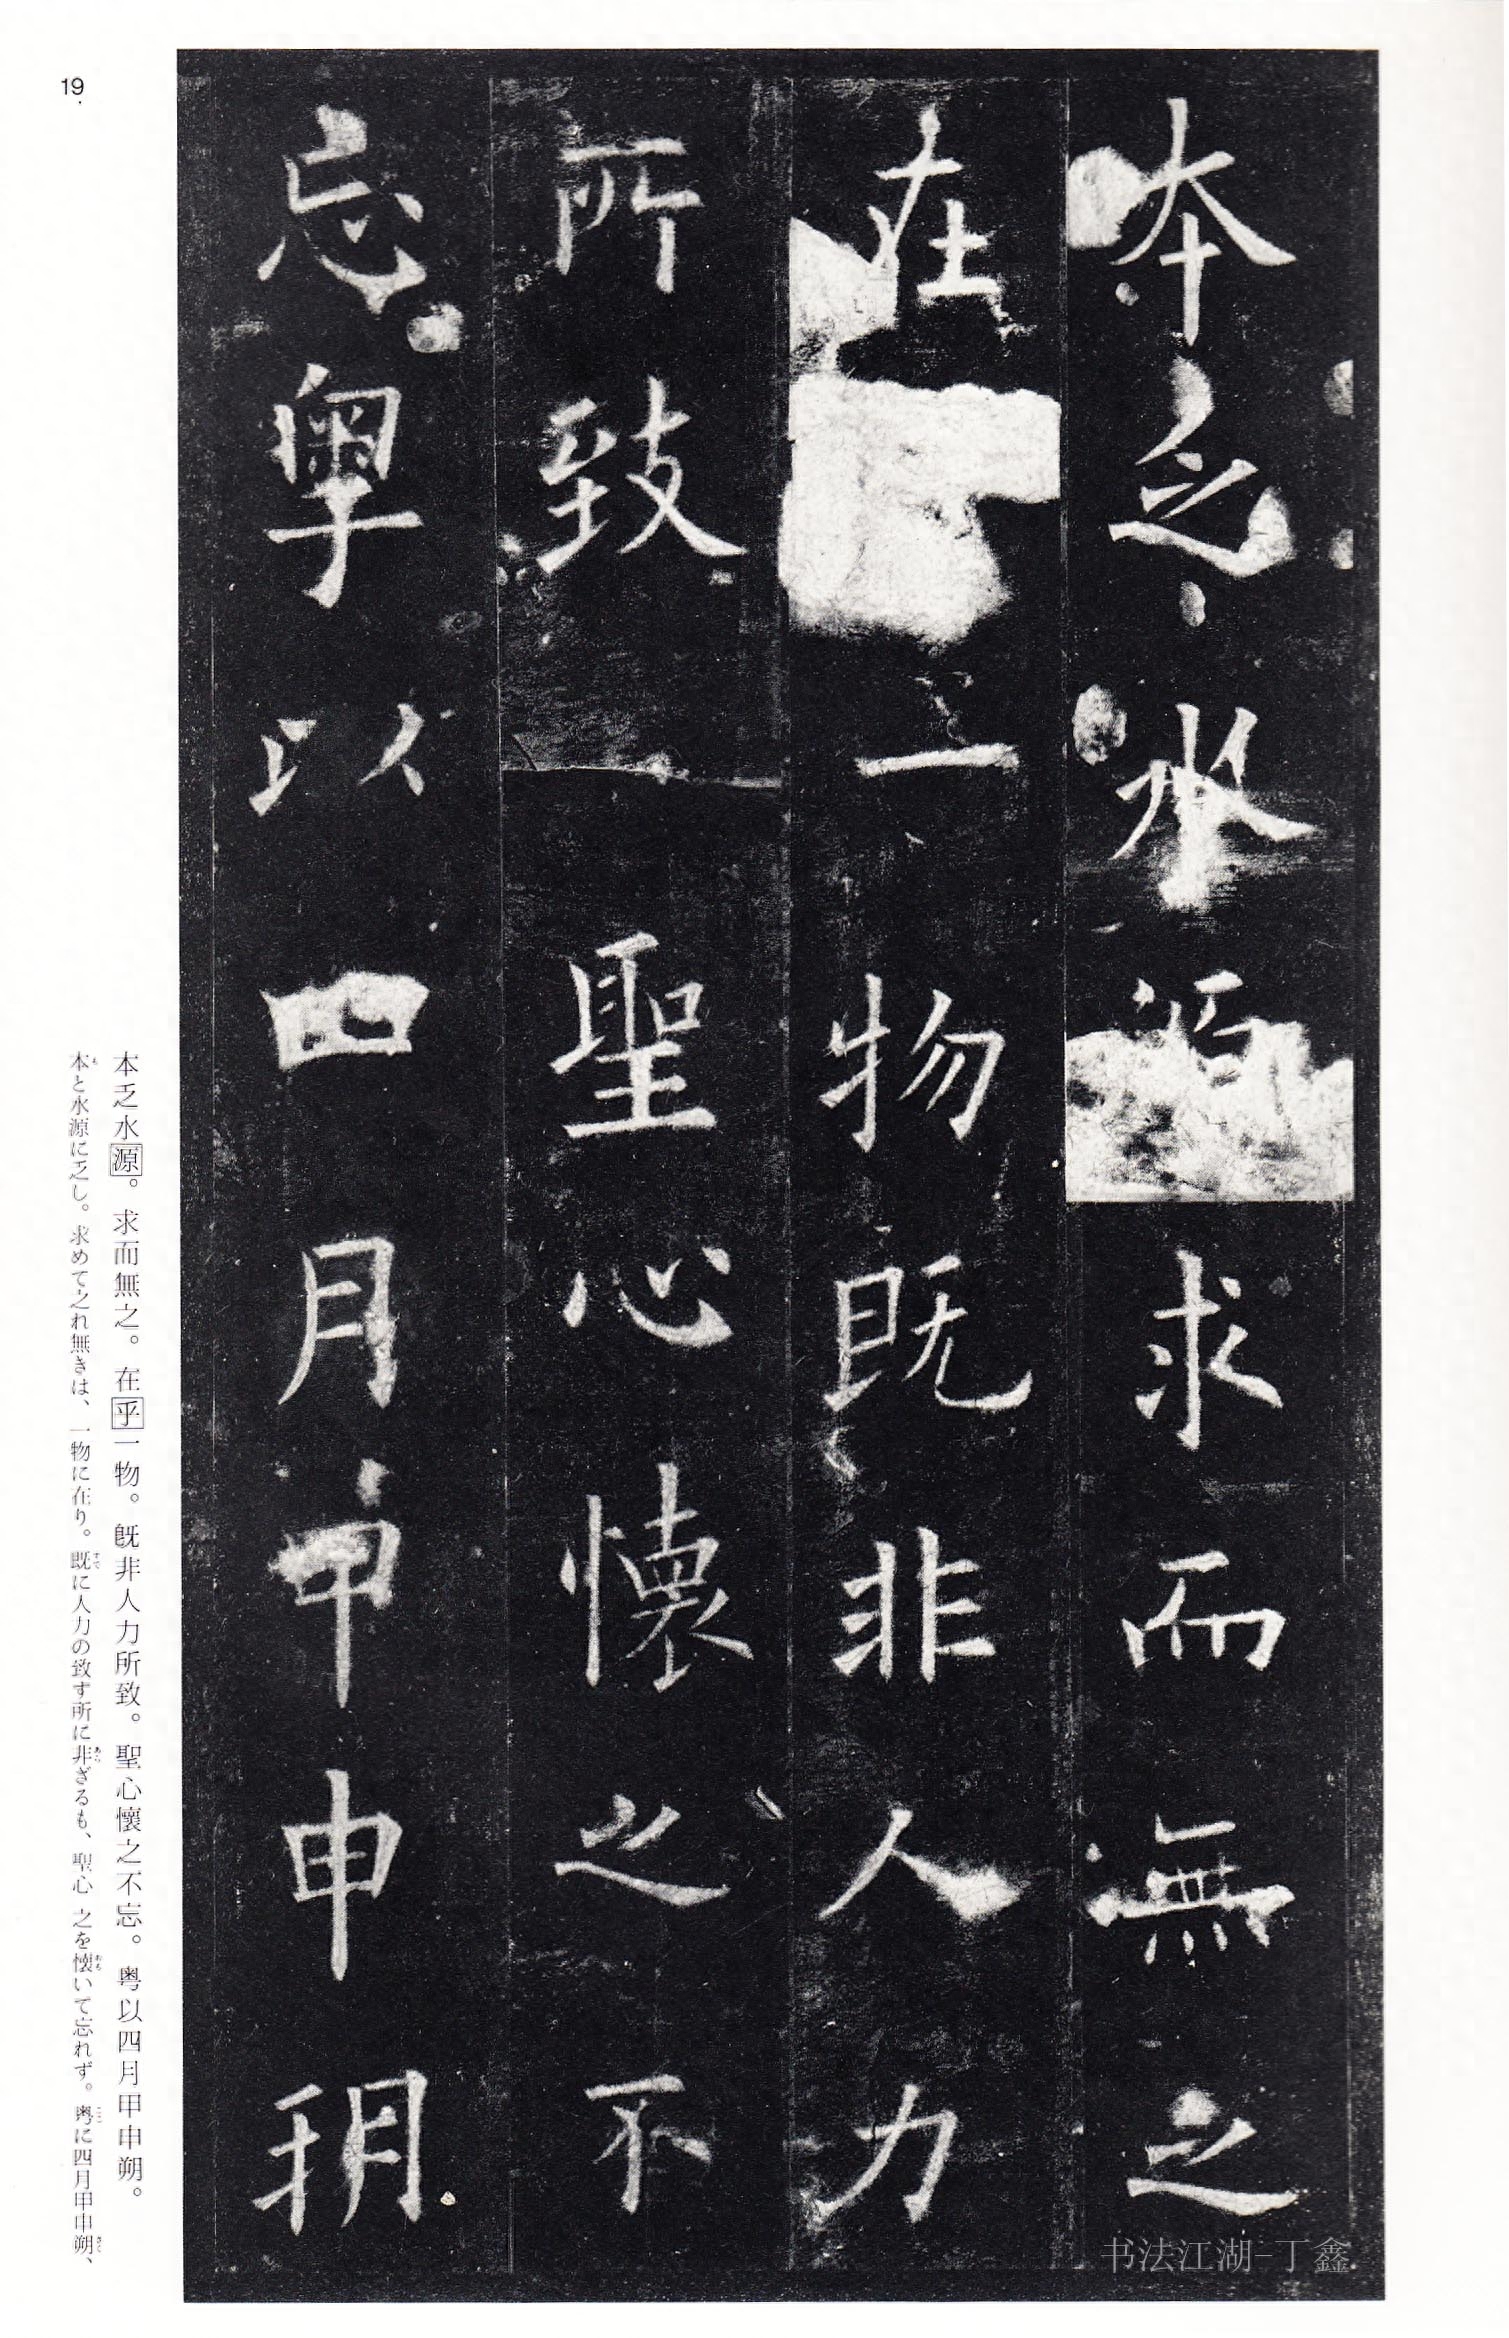 本乏水源求而無之
在一物既非人力
所致聖心懷之不
忘粤以四月甲申朔
本乏水源。求而無之。在乎一物。既非人力所致。聖心懷之不忘。粤以四月甲申朔。
本と水源に乏し。求めて之れ無きは、一物に在り。既に人力の致す所に非ざるも、聖心 之を懐いて忘れず。粤に四月甲申朔、
19
书法江湖-丁鑫